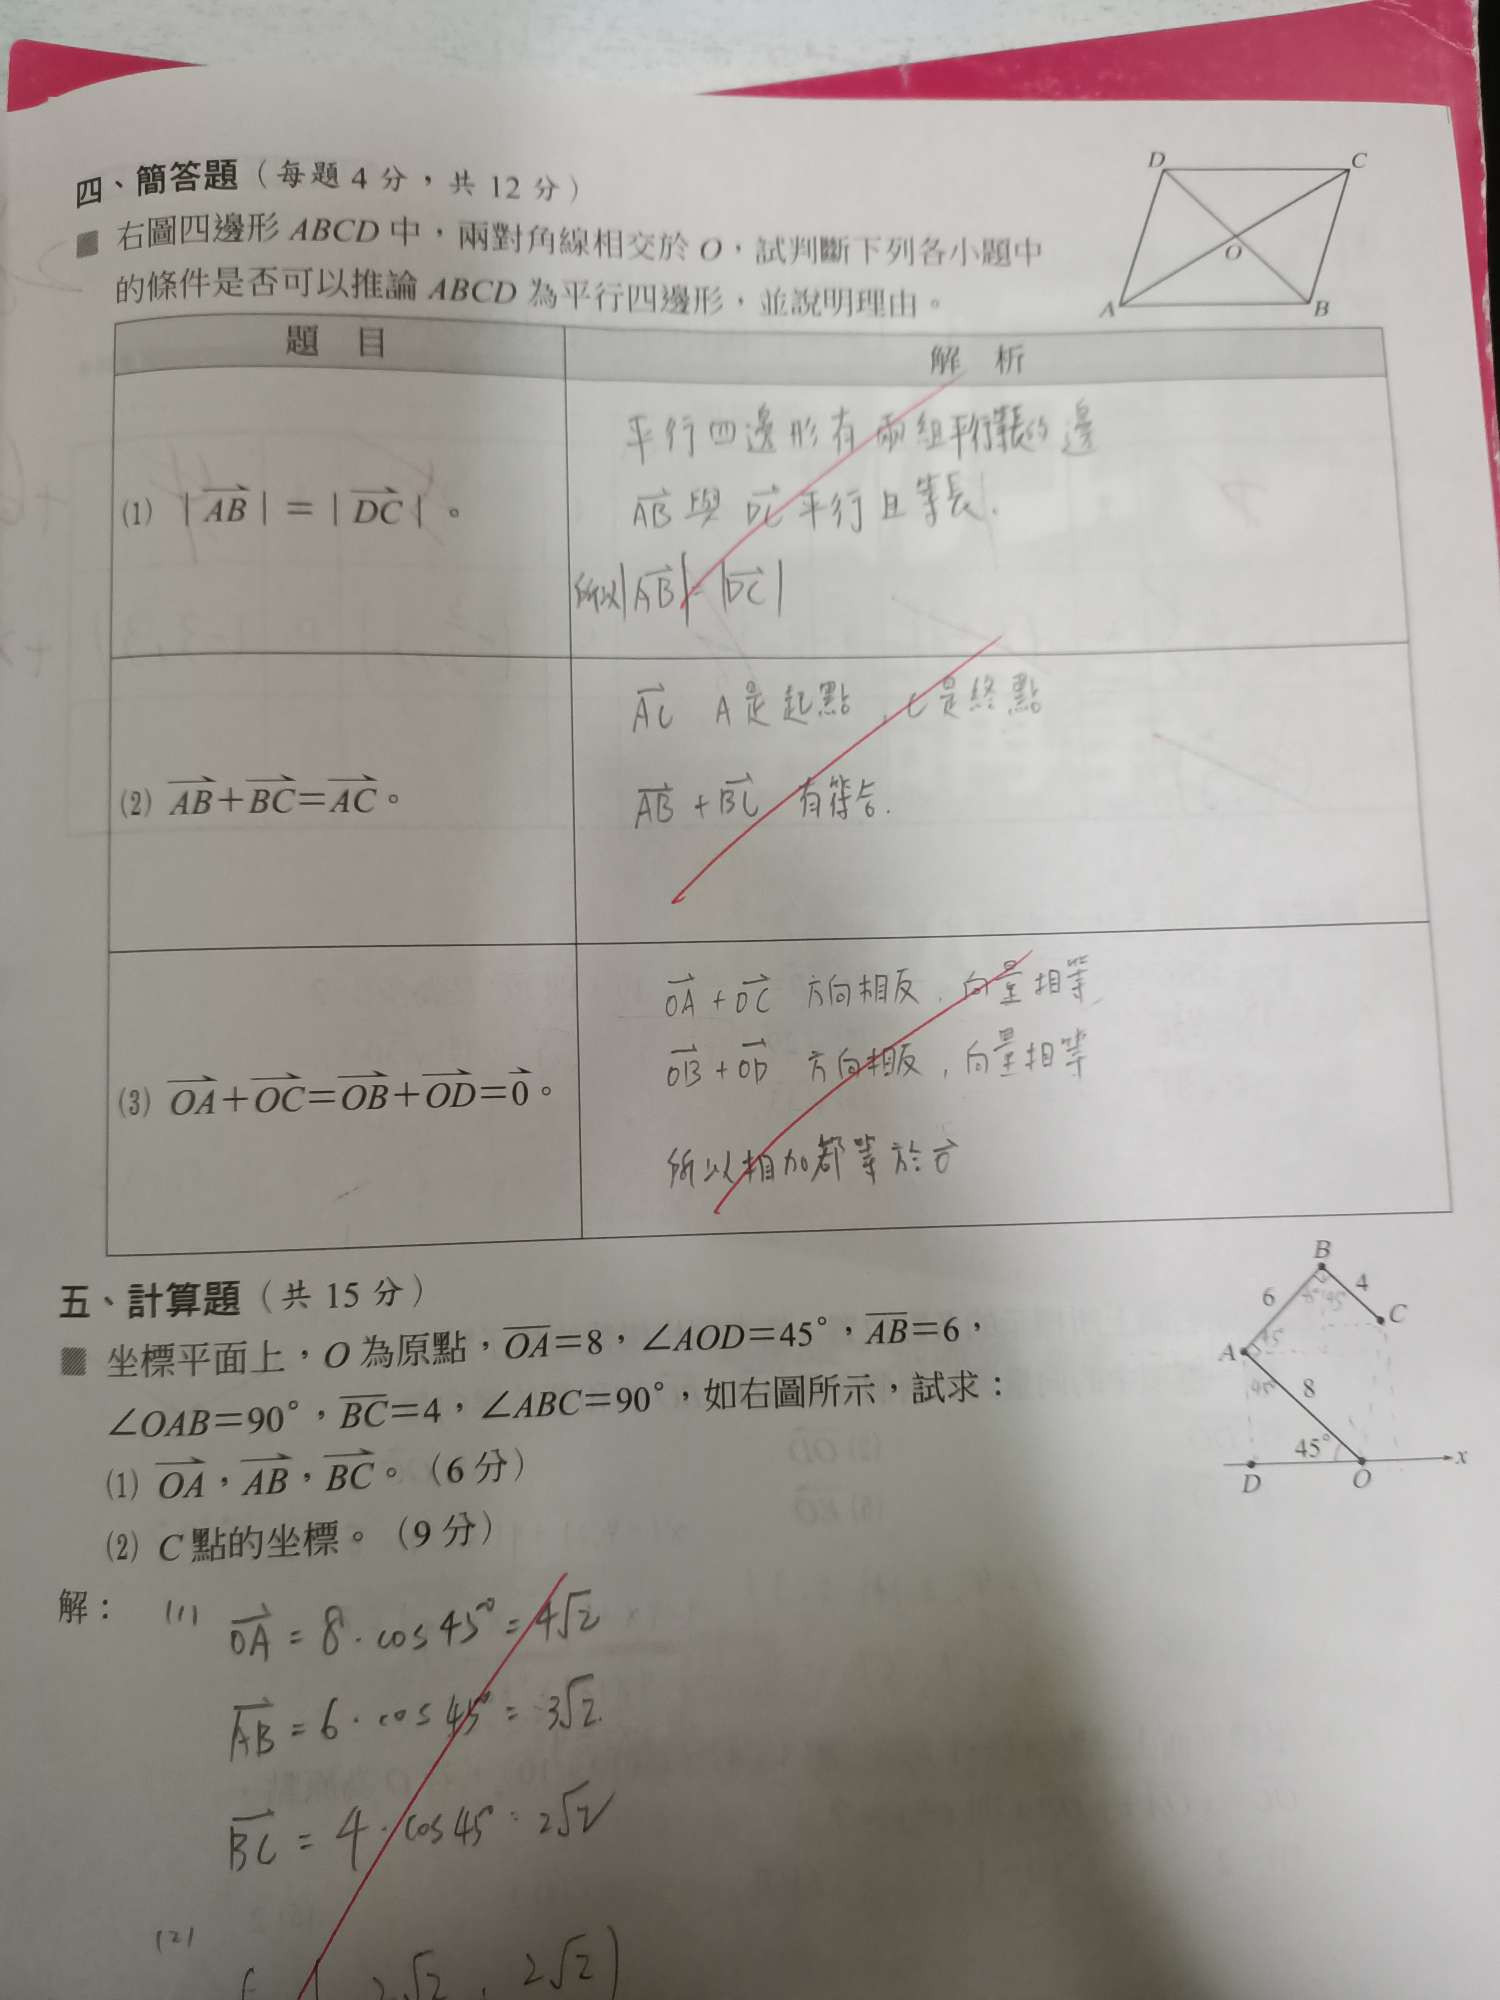 四、簡答題（每題 4 分，共 12 分）
右圖四邊形 ABCD 中，兩對角線相交於 O，試判斷下列各小題中
的條件是否可以推論 ABCD 為平行四邊形，並說明理由。
D C
O
A B
題 目 解 析
(1) |AB| = |DC|。
平行四邊形有兩組平行等長的邊
AB 與 DC 平行且等長.
所以|AB| = |DC|
(2) AB+BC=AC。
AC A是起點，C是終點
AB + BC 有符合.
(3) OA+OC=OB+OD=0。
OA + OC 方向相反，向量相等，
OB + OD 方向相反，向量相等
所以相加都等於0
五、計算題（共 15 分）
坐標平面上，O 為原點，OA=8，∠AOD=45°，AB=6，
∠OAB=90°，BC=4，∠ABC=90°，如右圖所示，試求：
(1) OA，AB，BC。（6 分）
(2) C 點的坐標。（9 分）
B
6 4
45° 45°
C
A 45°
45° 8
45°
D O x
解：
(1) OA = 8 · cos 45° = 4√2
AB = 6 · cos 45° = 3√2.
BC = 4 · cos 45° = 2√2
(2)
2√2 , 2√2 )